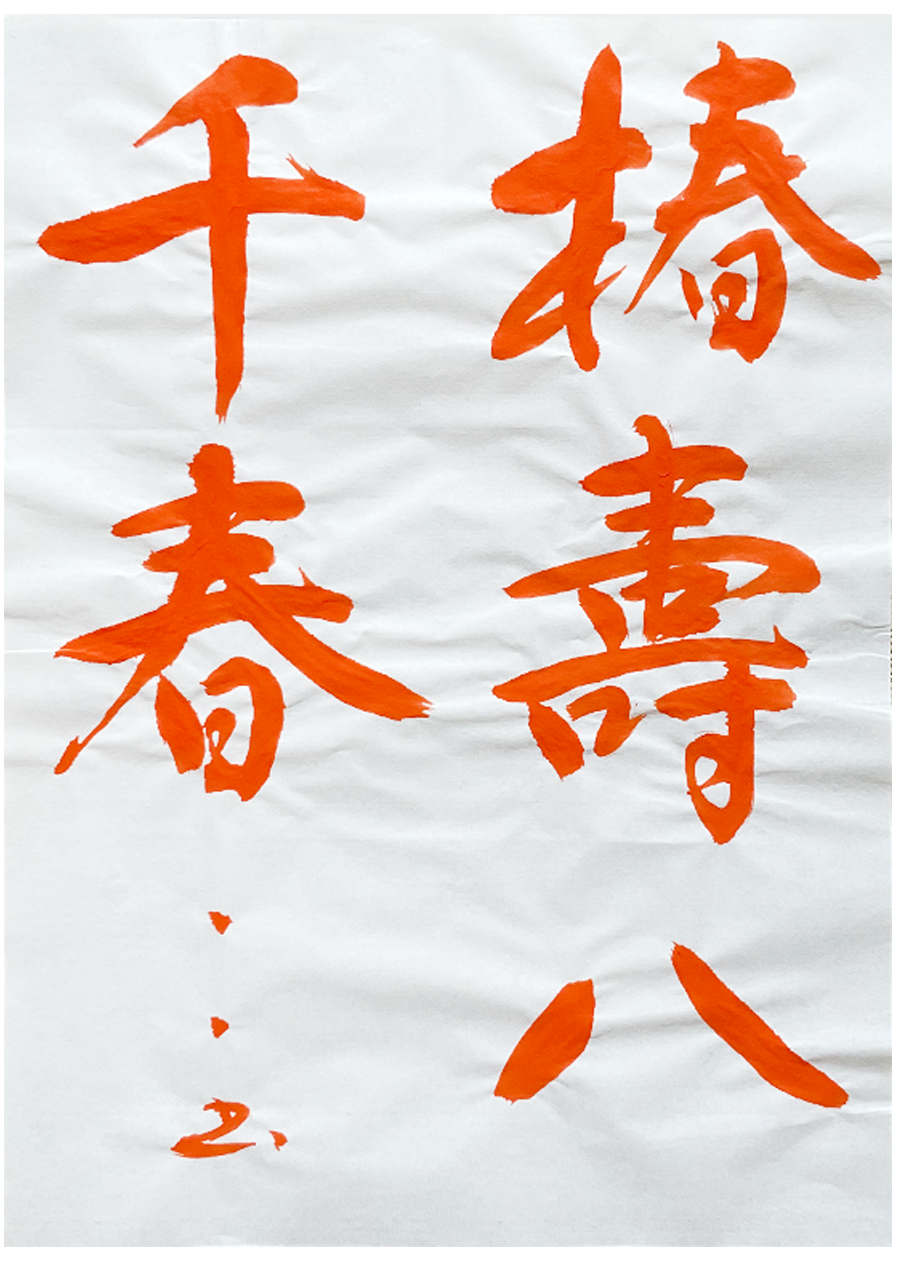 椿壽八
千春